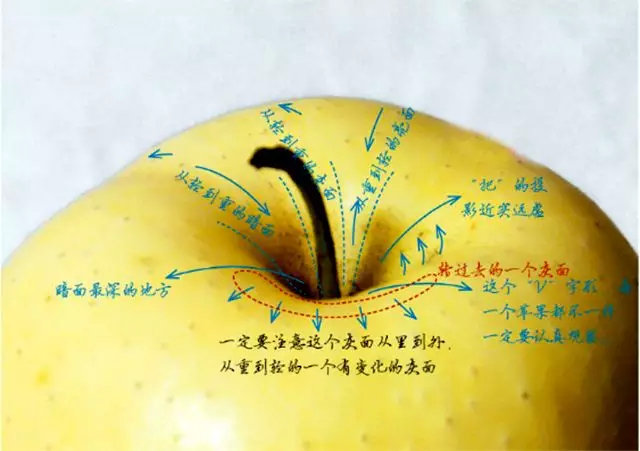 从轻到重的灰面
从重到轻的亮面
从轻到重的暗面
"把"的投
影近实远虚
转过去的一个灰面
暗面最深的地方
这个"V"字形
一个苹果都不一样
一定要认真观察.
一定要注意这个灰面从里到外.
从重到轻的一个有变化的灰面